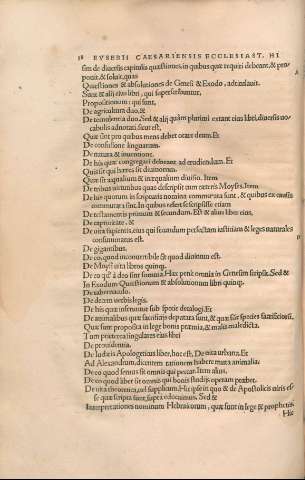 38 EVSEBII CAESARIENSIS ECCLESIAST. HI
sint de diuersis capitulis quæstiones, in quibus quæ requiri debeant, & pro
ponit, & soluit, quas
Quæstiones & absolutiones de Genesi & Exodo, adtitulauit.
Sunt & alij eius libri, qui superscribuntur,
Propositionum: qui sunt,
De agricultura duo, &
De temulentia duo. Sed & alij quàm plurimi extant eius libri, diuersis uo-
cabulis adnotati sicut est,
Quæ sunt pro quibus mens debet orare deum. Et
De confusione linguarum.
De natura & inuentione.
De his quæ congregari debeant ad erudiendum. Et
Quis sit qui hæres sit diuinorum.
Quæ sit æqualium & inæqualium diuisio. Item
De tribus uirtutibus quas descripsit cum ceteris Moyses. Item
De his quorum in scripturis nomina commutata sunt, & quibus ex causis
commutata sint. In quibus refert se scripsisse etiam
De testamentis primum & secundum. Est & alius liber eius,
De captiuitate, &
De uita sapientis, eius qui secundum perfectam iustitiam & leges naturales
consummatus est.
De gigantibus.
De eo, quod incōuertibile sit quod diuinum est.
De Moysi uita libros quinq;.
De eo qd' à deo sint somnia. Hæc penè omnia in Genesim scripsit. Sed &
In Exodum Quæstionum & absolutionum libri quinq;.
De tabernaculo.
De decem uerbis legis.
De his quæ inferuntur sub specie decalogi. Et
De animalibus quæ sacrificijs deputata sunt, & quæ sint species sacrificiorū.
Quæ sunt proposita in lege bonis præmia, & malis maledicta.
Tum præterea singulares eius libri
De prouidentia.
De Iudæis Apologeticus liber, hoc est, De uita urbana. Et
Ad Alexandrum, dicentem rationem habere muta animalia.
De eo quod seruus sit omnis qui peccat. Item alius,
De eo quod liber sit omnis qui bonis studijs operam præbet.
De uita theoretica, uel supplicum. Hic ipse in quo & de Apostolicis uiris es-
se quæ scripta sunt, supra edocuimus. Sed &
Interpretationes nominum Hebraicorum, quæ sunt in lege & prophetis.
Hic